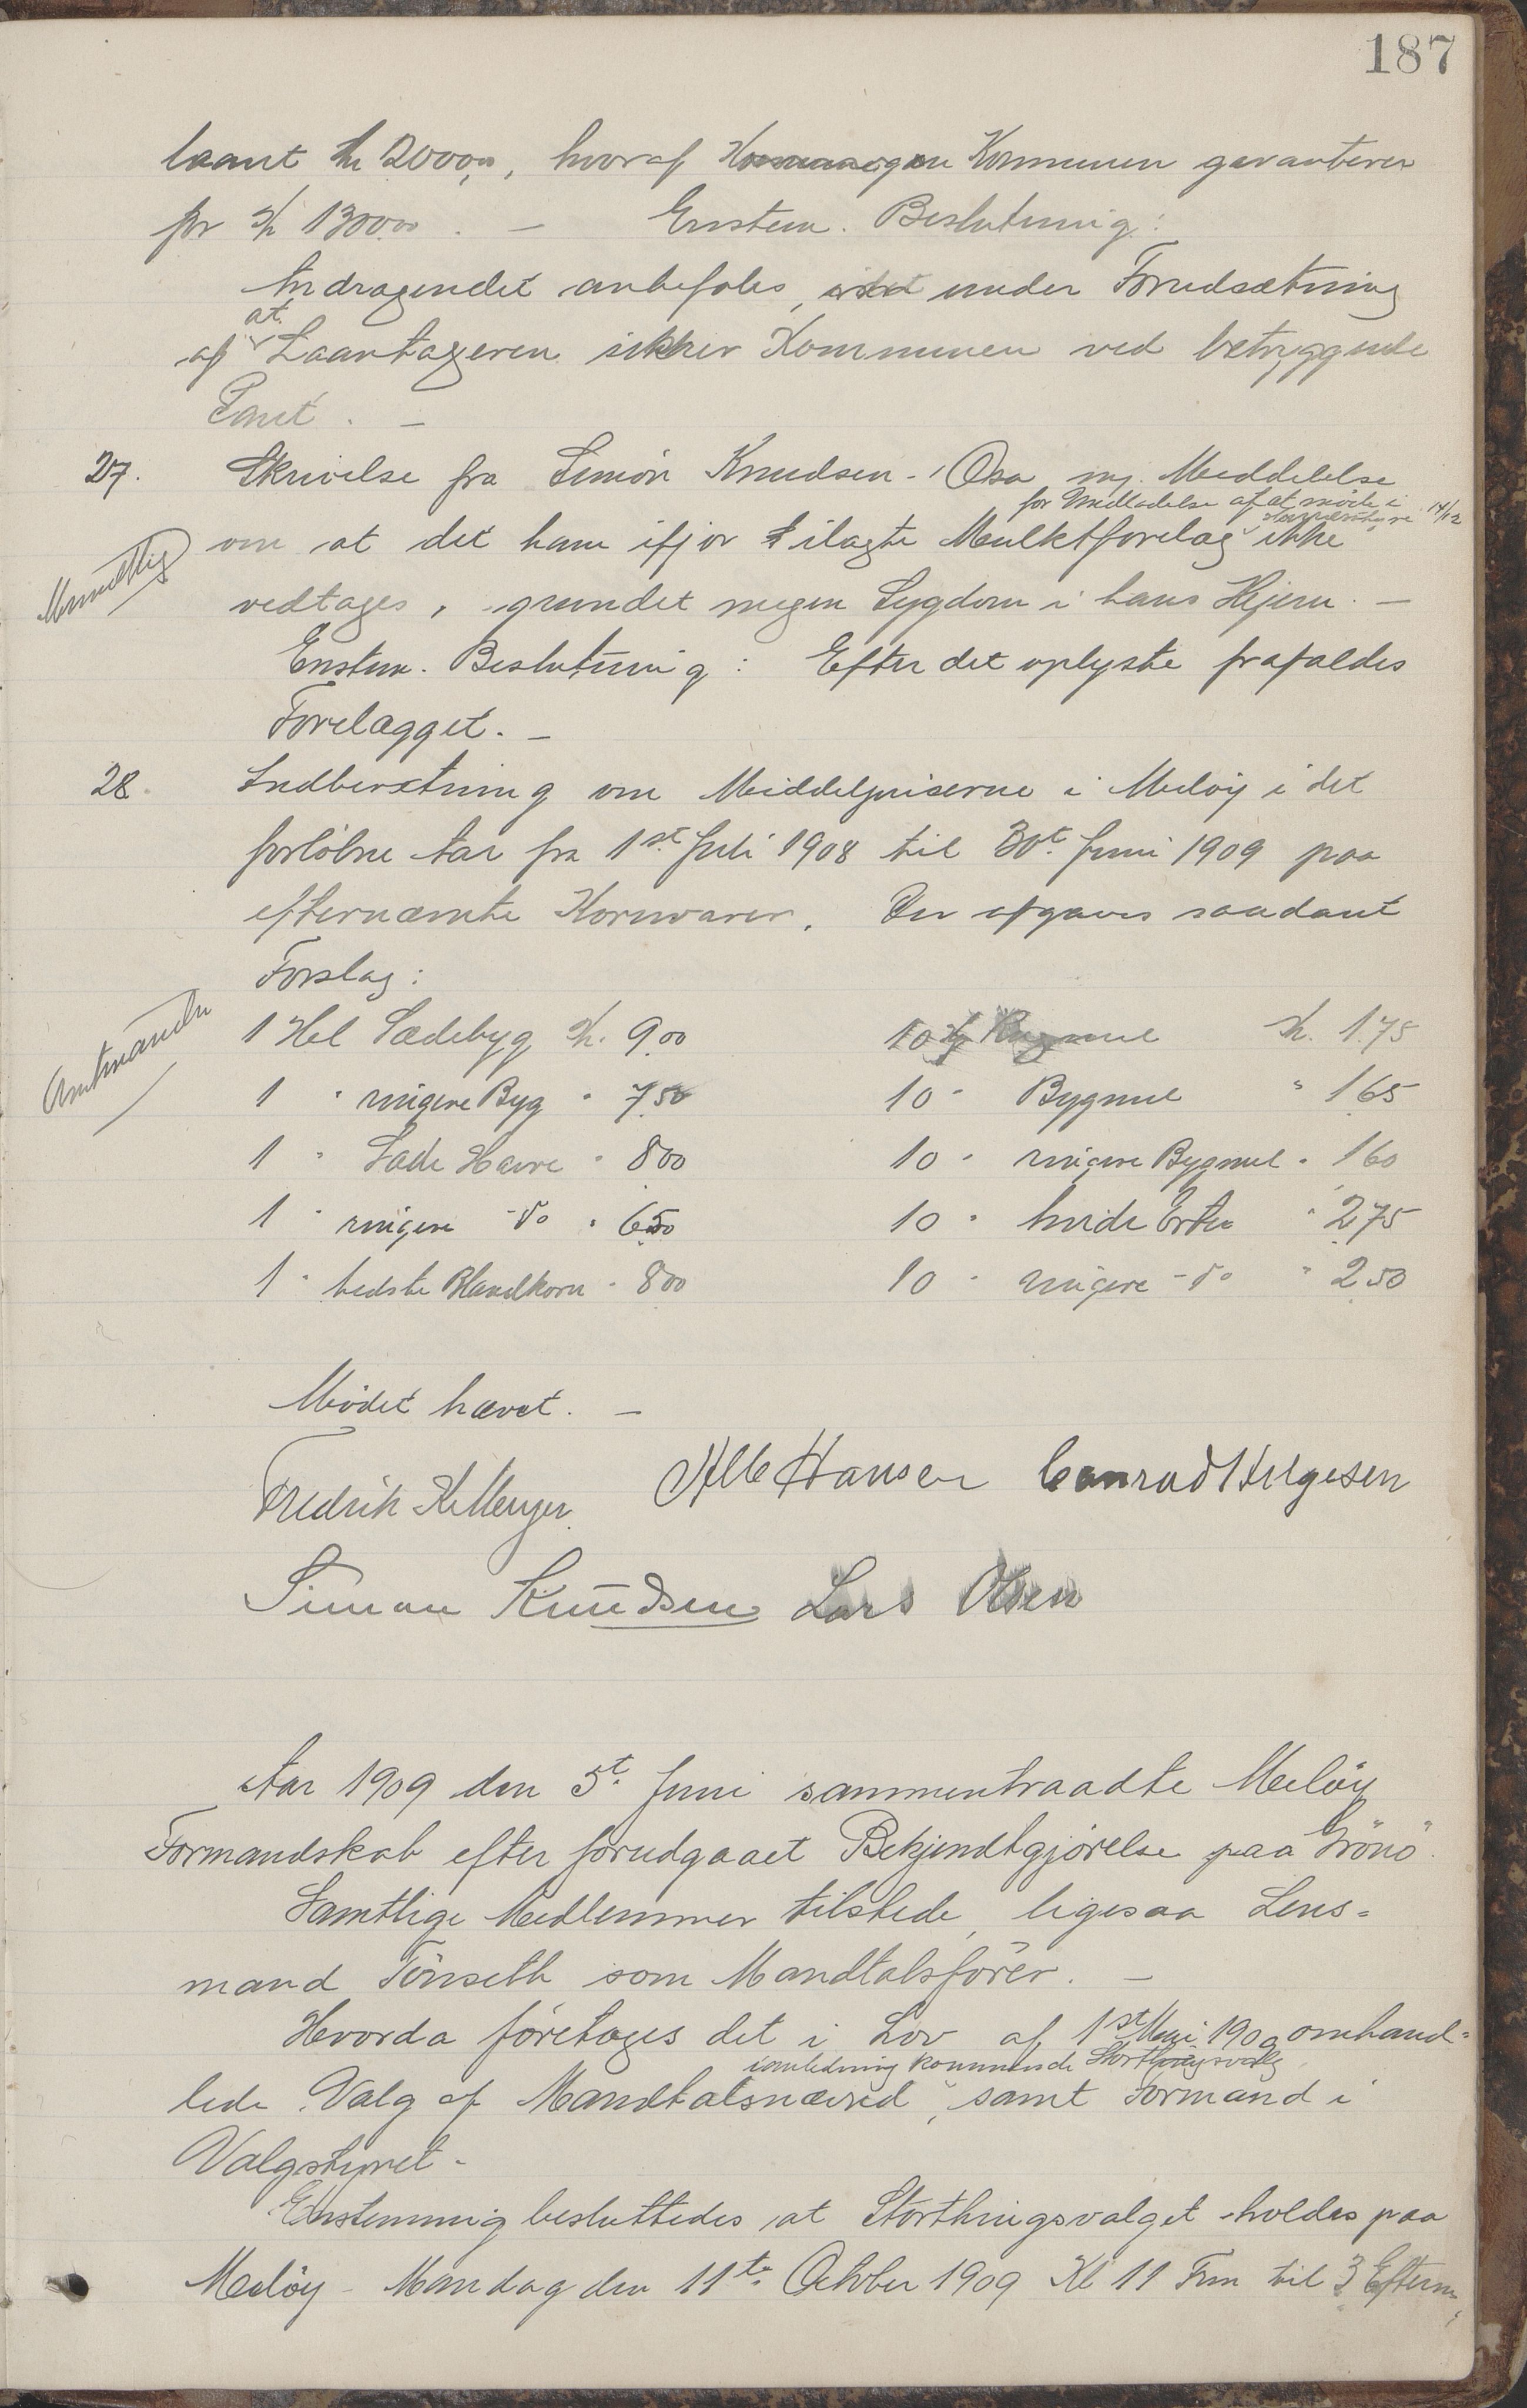 187
laant Kr 2000,00, hvoraf Kommunen garanterer
for Kr 1300.00. — Enstem. Beslutning:
Andragendet anbefales, under Forudsætning
at
af Laantageren sikker Kommunen ved betryggende
Pant. —
27. Skrivelse fra Simon Knudsen - Osa, Meddelelse
for Undladelse af at møde i 14/12
om at det ham ifjor ilagte Mulktforelag ikke
vedtages, grundet megen Sygdom i hans Hjem. —
Enstem. Beslutning: Efter det oplyste frafaldes
Forelægget. —
28. Indberetning om Middelpriserne i Meløy i det
forløbne Aar fra 1st Juli 1908 til 30t. Juni 1909 paa
efternævnte Kornvarer. Der afgaves saadant
Forslag:
Amtmanden
1 Hel Sædebyg Kr. 9.00 10 Kg Rugmel Kr. 1.75
1 " ringere Byg " 7.50 10 " Bygmel " 1.65
1 " Sæde Havre " 8.00 10 " ringere Bygmel " 1.60
1 " ringere - do " 6.50 10 " hvide Erter " 2.75
1 " bedste Blandkorn " 8.00 10 " ringere - do " 2.50
Mødet hævet. —
Hansen Conrad Helgesen
Fredrik
Simon Knudsen Lars Olsen
Aar 1909 den 5t. Juni sammentraadte Meløy
Formandskab efter forudgaaet Bekjendtgjørelse paa Grönö.
Samtlige Medlemmer tilstede, ligesaa Lens-
mand Tönseth som Mandtalsfører. —
Hvorda foretoges det i Lov af 1st Mai 1909 omhand-
i anledning kommende Storthingsvalg
lede Valg af Mandtalsnævnd, samt Formand i
Valgstyret -
Enstemmig besluttedes at Storthingsvalget holdes paa
Meløy - Mandag den 11te October 1909 Kl 11 Fm til 3 Efterm,